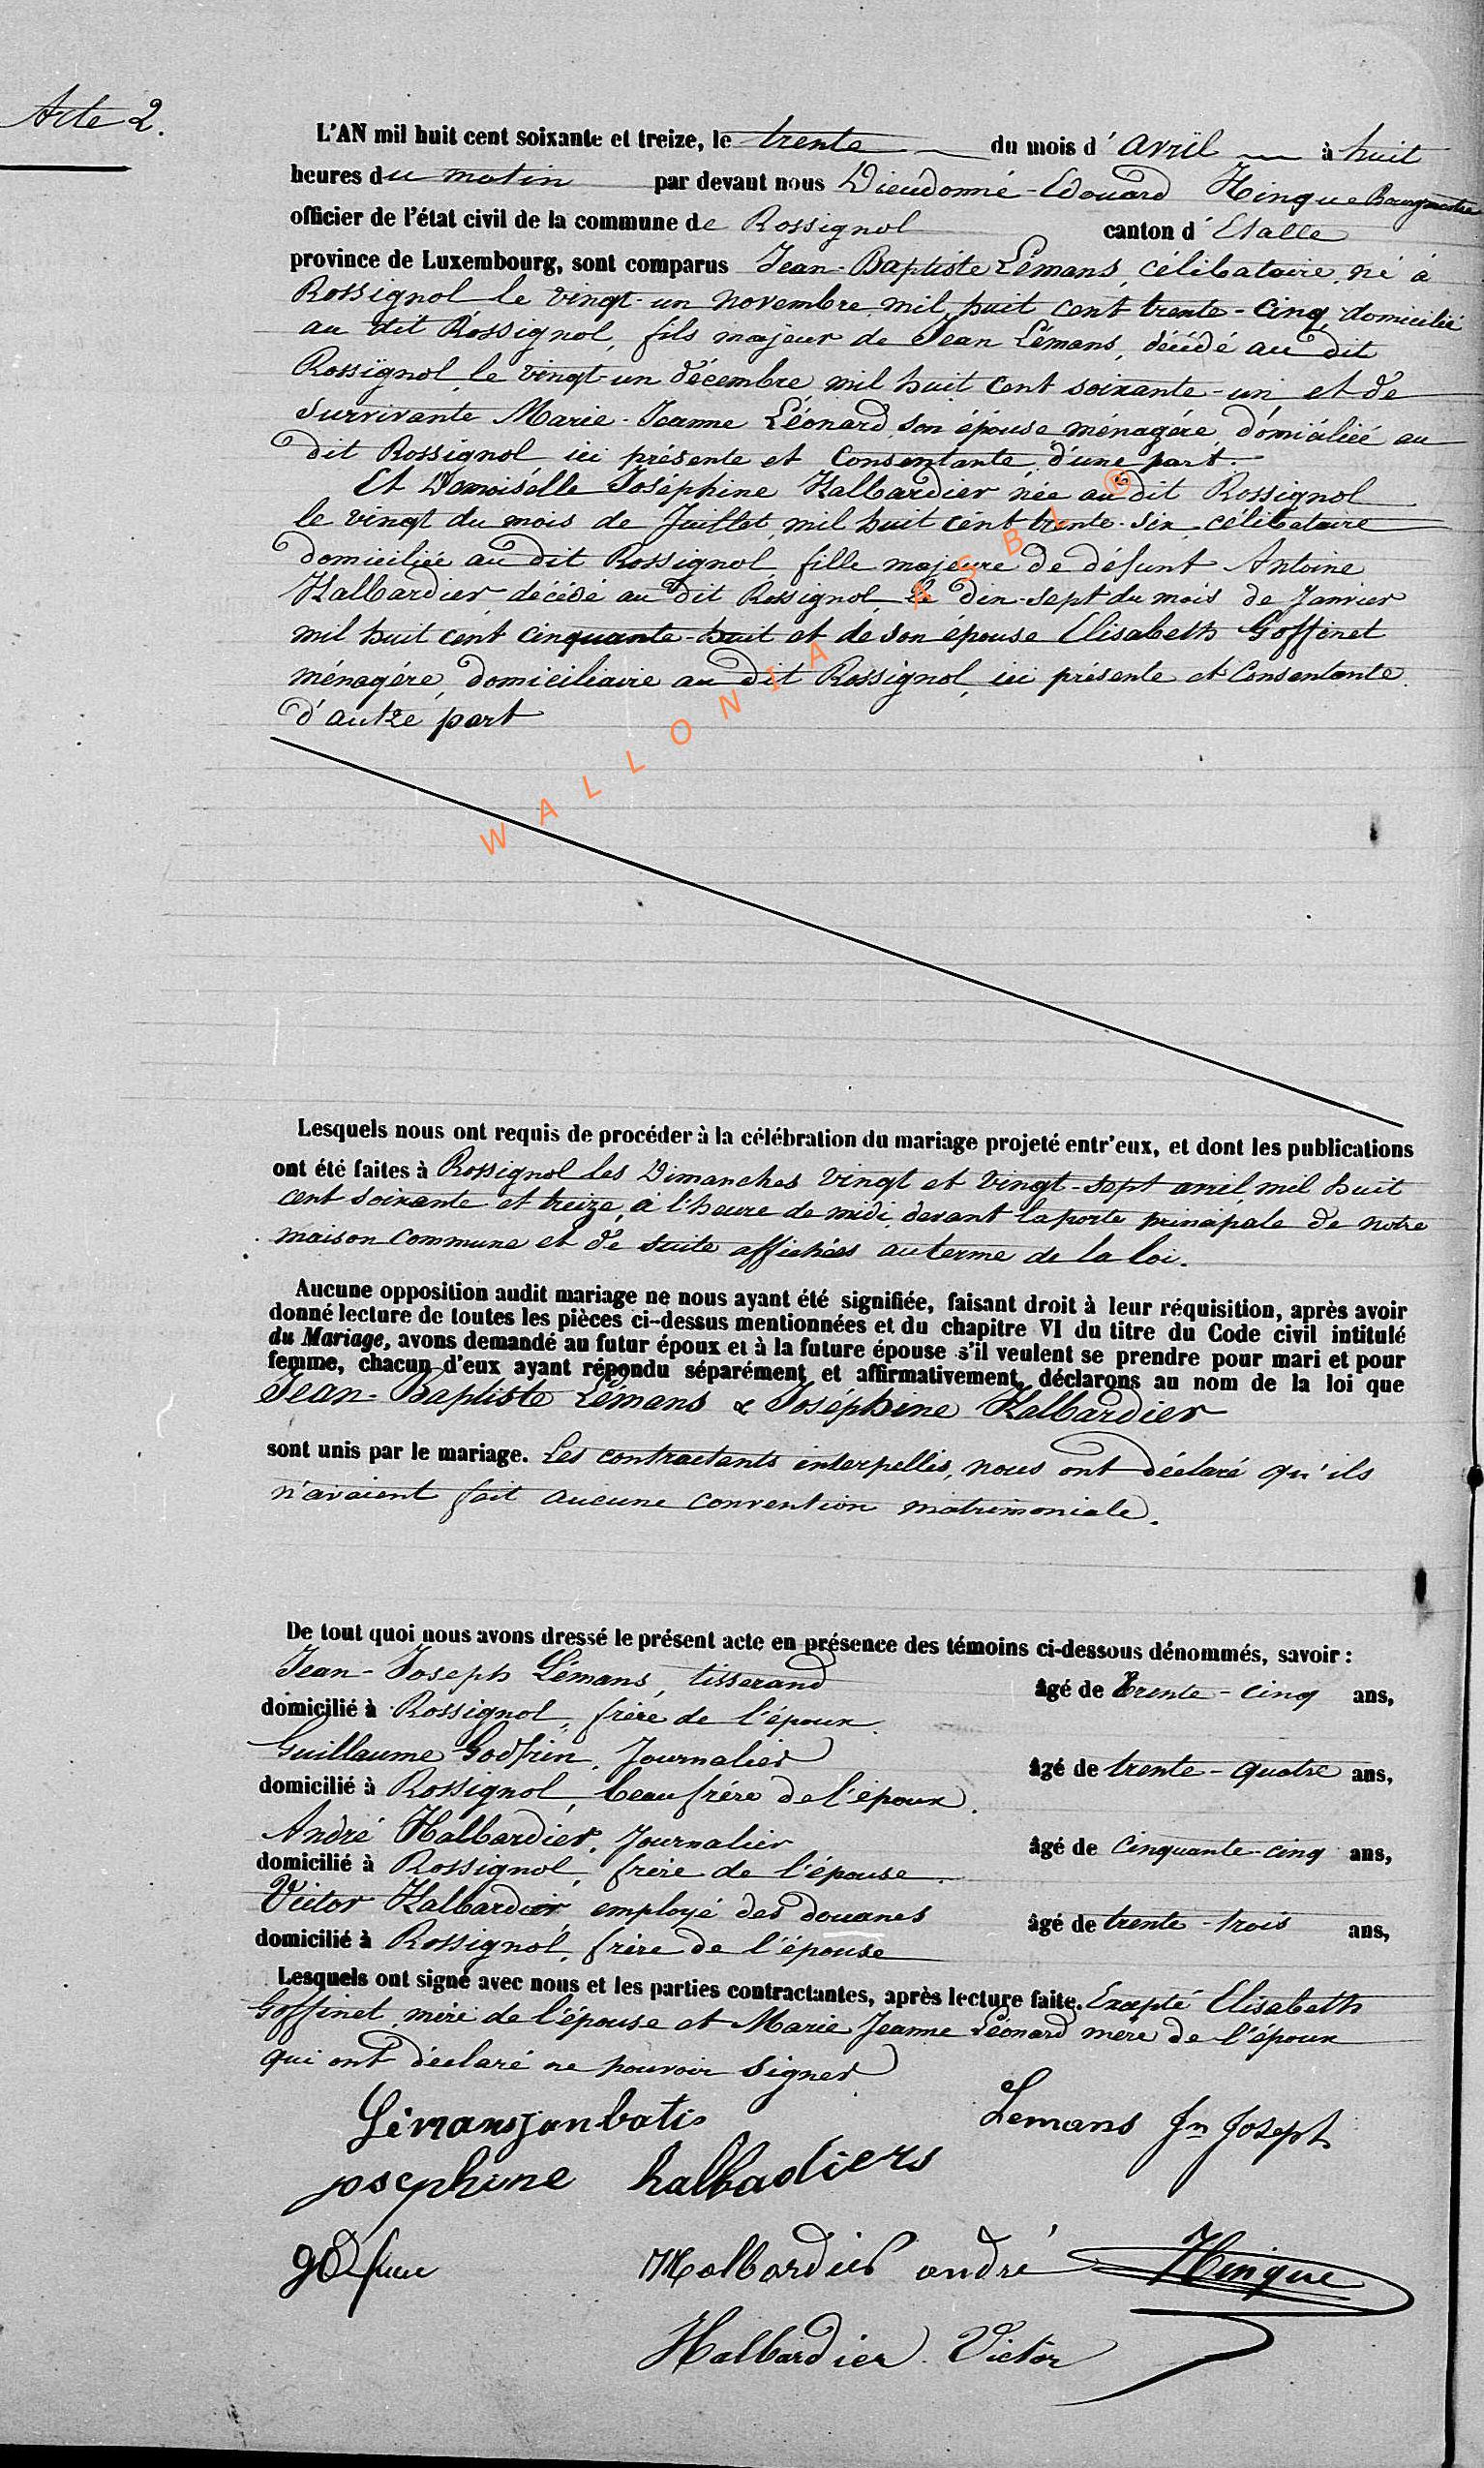 Acte 2.
L'AN mil huit cent soixante et treize, le trente du mois d'avril à huit
heures du matin par devant nous Dieudonné-Edouard Hinque Bourgmestre
officier de l'état civil de la commune de Rossignol canton d'Etalle
province de Luxembourg, sont comparus Jean-Baptiste Lémans, célibataire, né à
Rossignol le vingt-un novembre mil huit cent trente-cinq, domicilié
au dit Rossignol, fils majeur de Jean Lémans, décédé au dit
Rossignol le vingt-un décembre mil huit cent soixante-un et de
survivante Marie-Jeanne Léonard, son épouse ménagére, domiciliée au
dit Rossignol ici présente et consentante, d'une part.
Et Demoiselle Joséphine Halbardier née au dit Rossignol
le vingt du mois de Juillet, mil huit cent trente-six, célibataire
domiciliée au dit Rossignol, fille majeure de défunt Antoine
Halbardier, décédé au dit Rossignol, le dix-sept du mois de Janvier
mil huit cent cinquante-huit et de son épouse Elisabeth Goffinet
ménagére, domiciliaire au dit Rossignol, ici présente et consentante.
d'autre part
WALLONIA ASBL ®
Lesquels nous ont requis de procéder à la célébration du mariage projeté entr'eux, et dont les publications
ont été faites à Rossignol les Dimanches vingt et vingt-sept avril mil huit
cent soixante et treize, à l'heure de midi, devant la porte principale de notre
maison commune et de suite affichées au terme de la loi.
Aucune opposition audit mariage ne nous ayant été signifiée, faisant droit à leur réquisition, après avoir
donné lecture de toutes les pièces ci-dessus mentionnées et du chapitre VI du titre du Code civil intitulé
du Mariage, avons demandé au futur époux et à la future épouse s'il veulent se prendre pour mari et pour
femme, chacun d'eux ayant répondu séparément et affirmativement, déclarons au nom de la loi que
Jean-Baptiste Lémans & Joséphine Halbardier
sont unis par le mariage. Les contractants interpellés, nous ont déclaré qu'ils
n'avaient fait aucune convention matrimoniale.
De tout quoi nous avons dressé le présent acte en présence des témoins ci-dessous dénommés, savoir :
Jean-Joseph Lémans, tisserand âgé de trente-cinq ans,
domicilié à Rossignol, frère de l'époux.
Guillaume Godfrin, Journalier âgé de trente-quatre ans,
domicilié à Rossignol, beau frére de l'époux.
André Halbardier, Journalier âgé de cinquante-cinq ans,
domicilié à Rossignol, frère de l'épouse.
Victor Halbardier, employé des douanes âgé de trente-trois ans,
domicilié à Rossignol, frère de l'épouse
Lesquels ont signé avec nous et les parties contractantes, après lecture faite. Excepté Elisabeth
Goffinet, mère de l'épouse et Marie Jeanne Léonard mère de l'époux
qui ont déclaré ne pouvoir signer
Lémans janbatis Lemans Jn Joseph
josephine halbadiers
Halbardier andré Hinque
Halbardier Victor